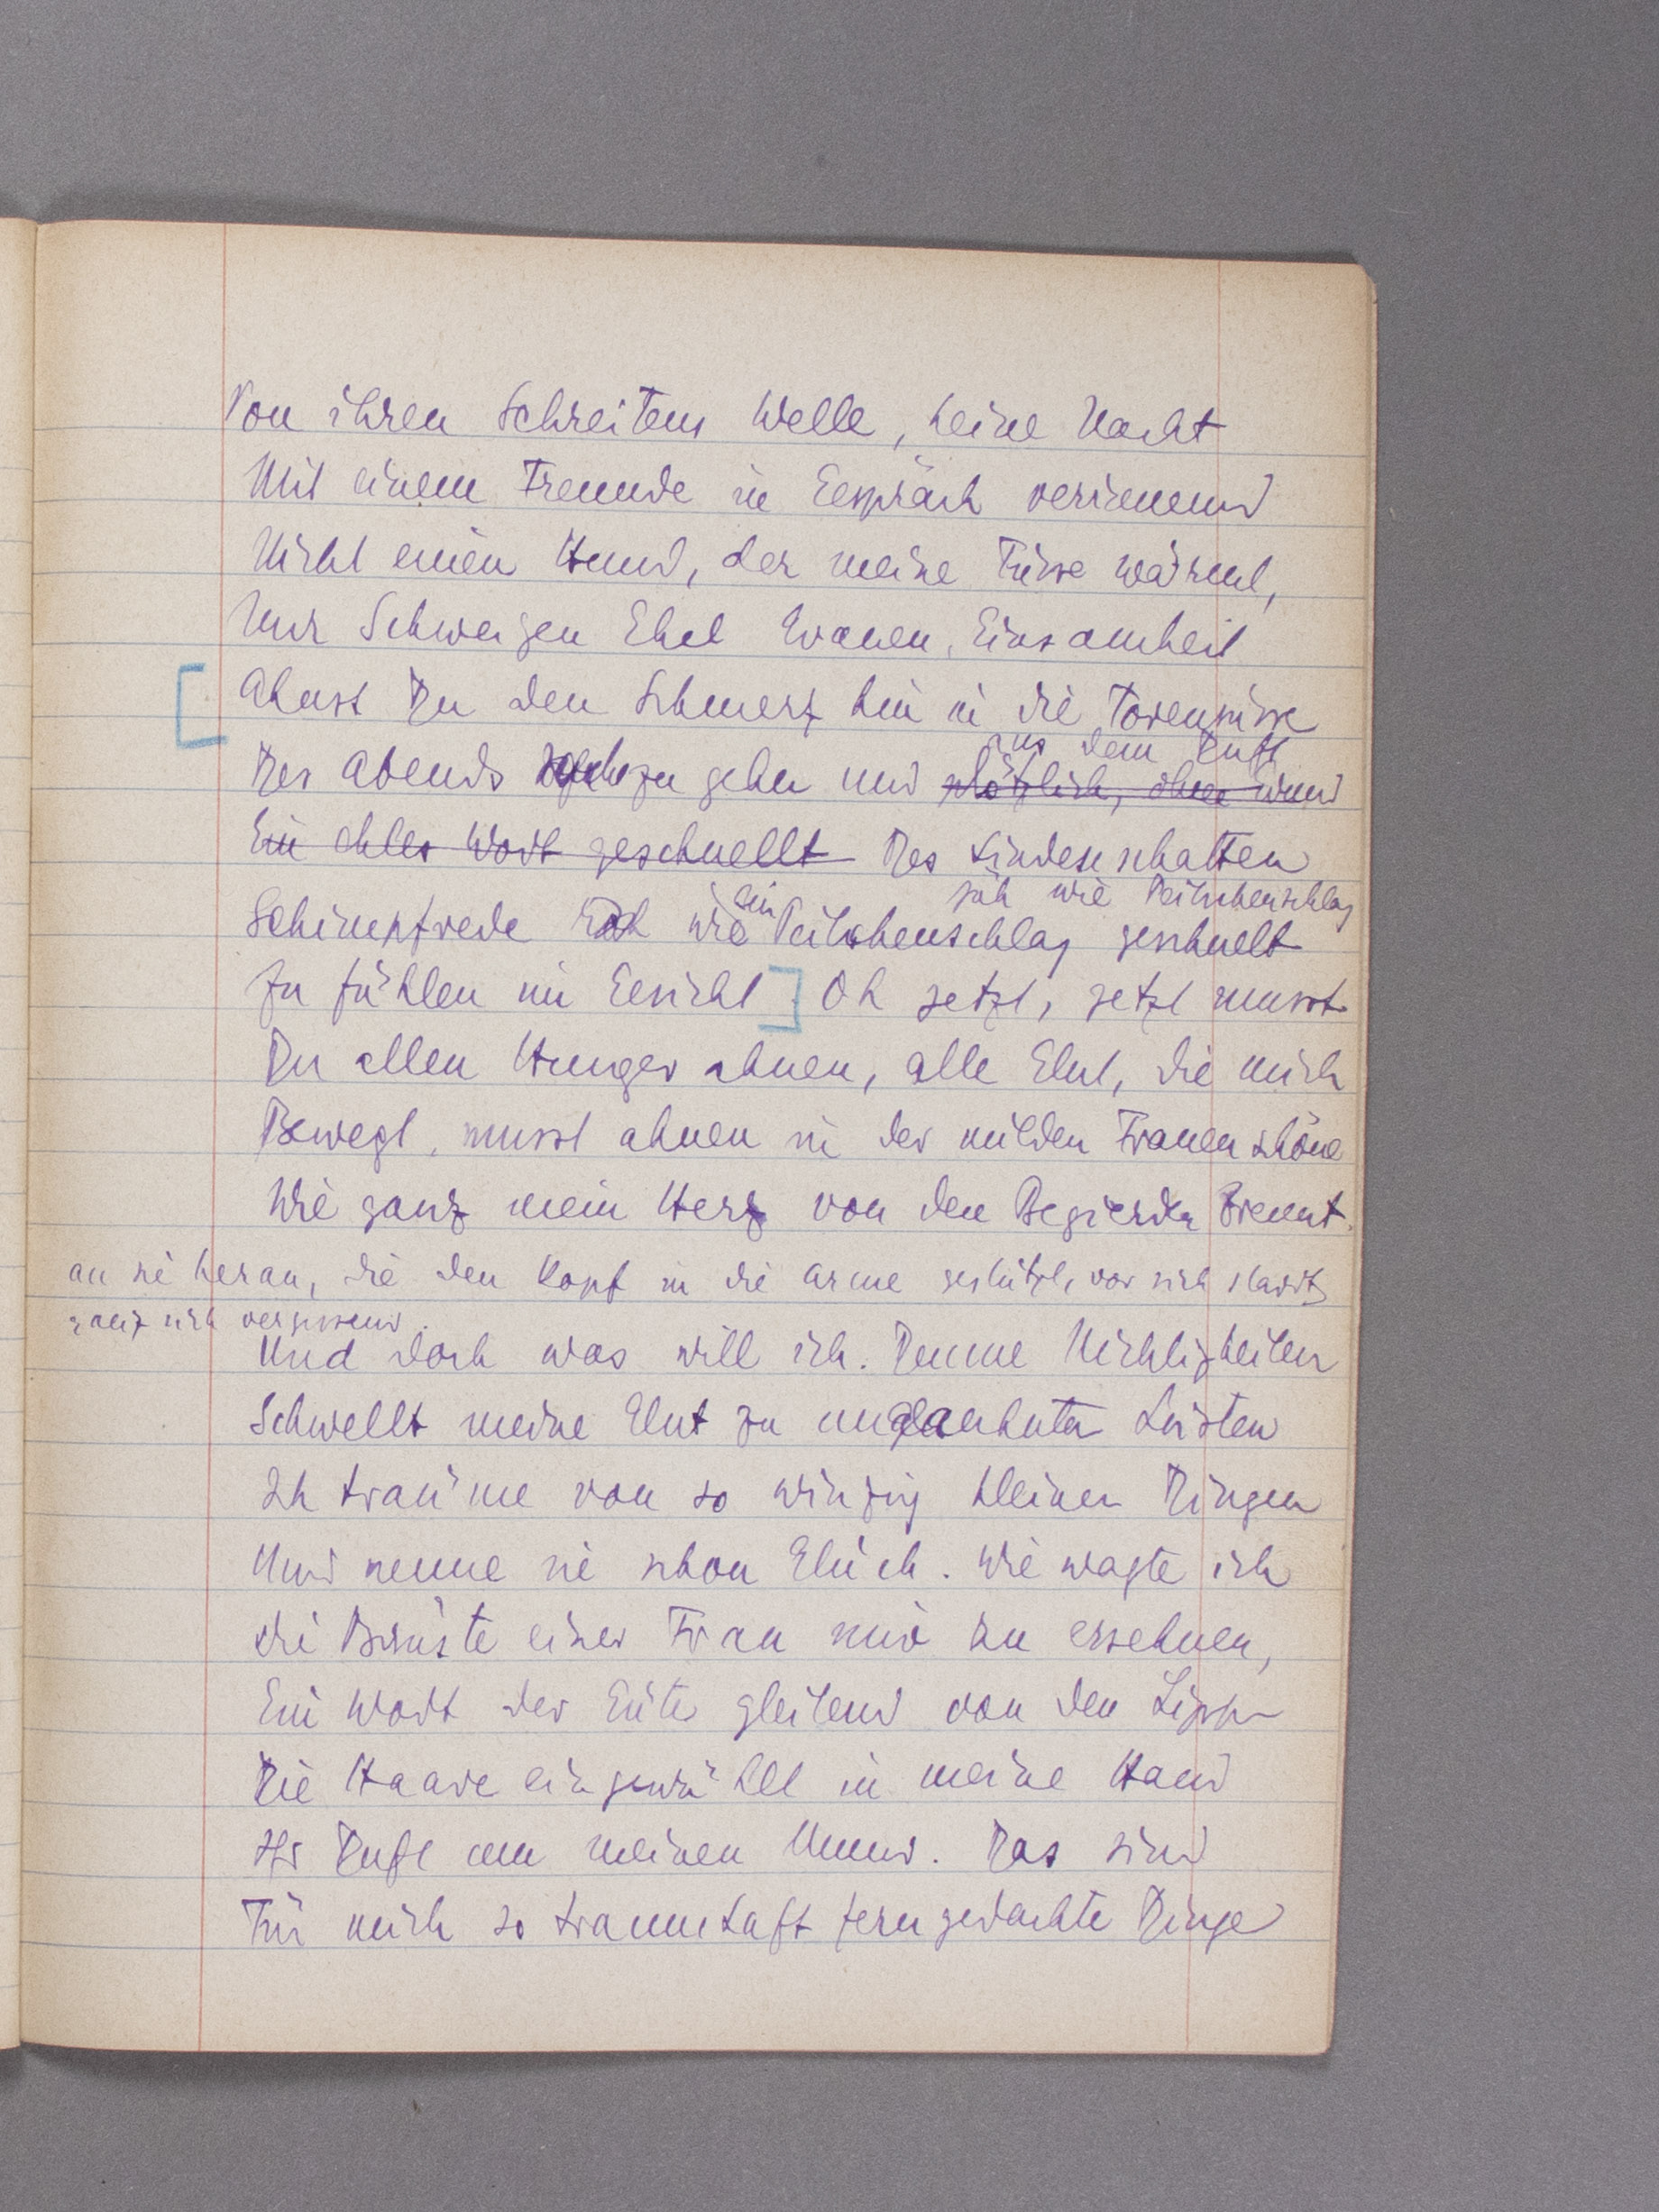 Von ihren Schreitens Welle, keine Nacht
Mit einem Freunde in Gespräch verrinnend
Nicht einen Hund, der meine Füsse wärmt,
Nur Schweigen Ekel Grauen, Einsamkeit
[Ahnst Du den Schmerz hin in die Rosensüsse
aus dem Duft
Des Abends zu gehn und plötzlich, ohne Grund
Ein ekles Wort geschnellt Des Lindenschatten
jäh wie Peitschenschlag
Schimpfrede wie ein Peitschenschlag geschnellt
Zu fühlen im Gesicht] Oh jetzt, jetzt musst
Du allen Hunger ahnen, alle Glut, die mich
Bewegt, musst ahnen in der milden Frauenschöne
Wie ganz mein Herz von den Begierden brennt.
an sie heran, die den Kopf in die Arme gestützt, vor sich starrt,
ganz sich vergessend.
Und doch was will ich. Denn Nichtigkeiten
Schwellt meine Glut zu ungeahnten Lüsten
Ich träume von so winzig kleinen Dingen
Und nenne sie schon Glück. Wie wagte ich
die Brüste einer Frau mir zu ersehnen,
Ein Wort der Güte gleitend von den Lippen
Die Haare eingewühlt in meine Hand
Ihr Duft um meinen Mund. Das sind
Für mich so traumhaft ferngedachte Dinge